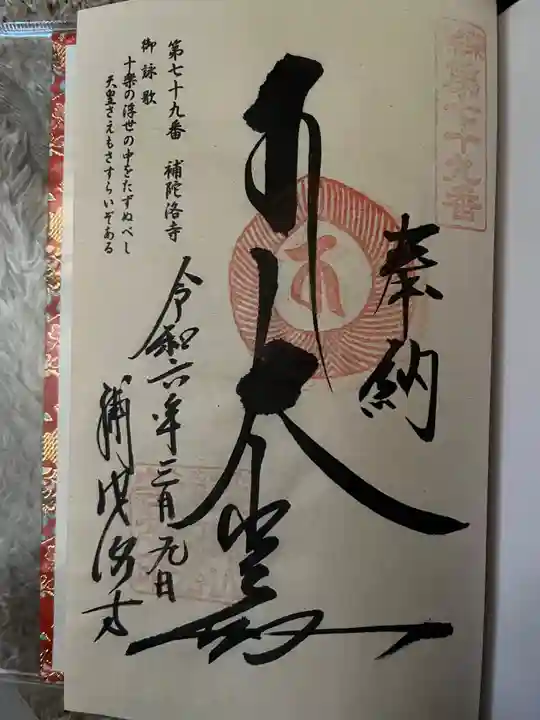 第七十九番
奉納
大
令和六年三月九日
補陀洛寺
第七十九番　補陀洛寺
御詠歌
十楽の浮世の中をたずぬべし
天皇さえもさすらいぞある